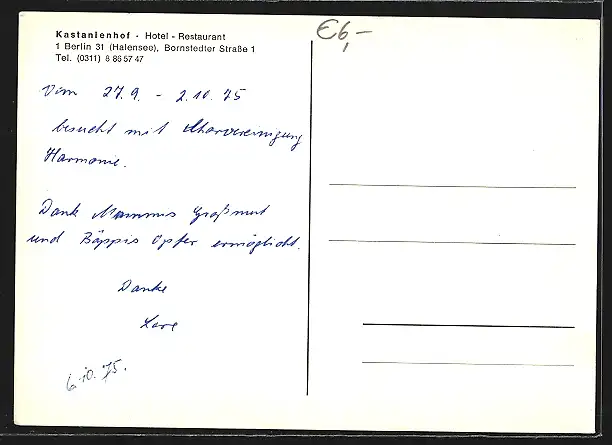 Kastanienhof · Hotel - Restaurant
1 Berlin 31 (Halensee), Bornstedter Straße 1
Tel. (0311) 8 86 57 47
€6,-
Vom 27.9. - 2.10.75
besucht mit Chorvereinigung
Harmonie.
Dank Mammis Großmut
und Bäppis Opfer ermöglicht.
Danke
Lore
6.10.75.